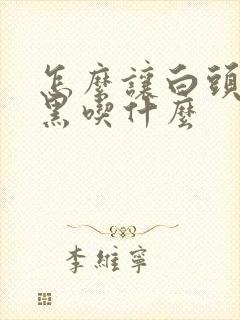 怎麼讓白頭
黑喫什麼
李維寧